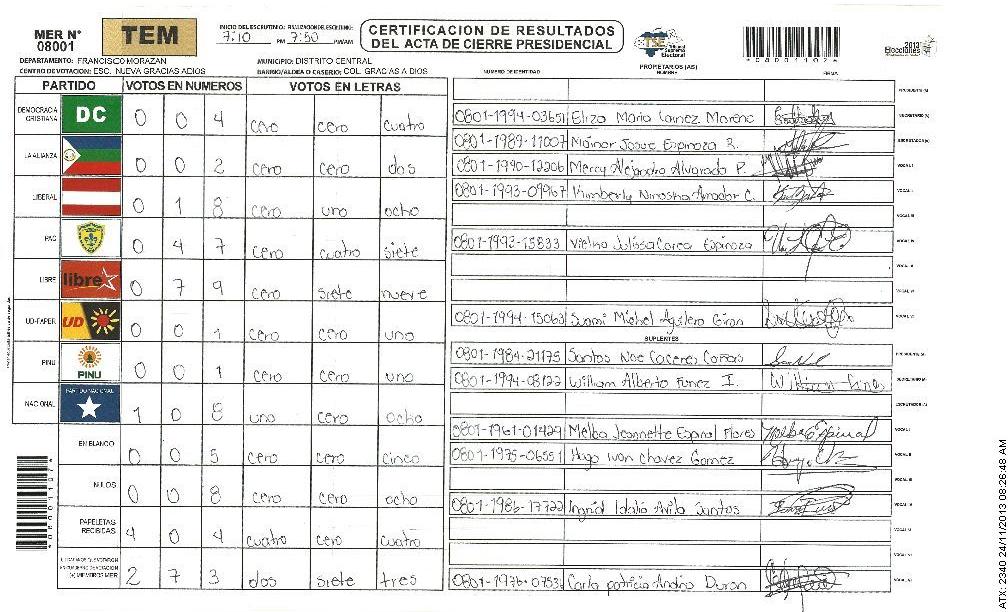 MER N° 08001
TEM
INICIO DEL ESCRUTINIO: FINALIZACION DEL ESCRUTINIO:
7:10 PM 7:50 PM/AM
CERTIFICACION DE RESULTADOS
DEL ACTA DE CIERRE PRESIDENCIAL
TSE Tribunal Supremo Electoral
2013 Elecciones
*08001107*
DEPARTAMENTO: FRANCISCO MORAZAN
MUNICIPIO: DISTRITO CENTRAL
CENTRO DE VOTACION: ESC. NUEVA GRACIAS ADIOS
BARRIO/ALDEA O CASERIO: COL. GRACIAS A DIOS
PARTIDO VOTOS EN NUMEROS VOTOS EN LETRAS
DEMOCRACIA CRISTIANA DC 0 0 4 cero cero cuatro
LA ALIANZA 0 0 2 cero cero dos
LIBERAL 0 1 8 cero uno ocho
PAC 0 4 7 cero cuatro siete
LIBRE libre 0 7 9 cero siete nueve
UD-FAPER UD 0 0 1 cero cero uno
PINU PINU 0 0 1 cero cero uno
NACIONAL PARTIDO NACIONAL 1 0 8 uno cero ocho
EN BLANCO 0 0 5 cero cero cinco
NULOS 0 0 8 cero cero ocho
PAPELETAS RECIBIDAS 4 0 4 cuatro cero cuatro
(+) MIEMBROS MER 2 7 3 dos siete tres
PROPIETARIOS (AS)
NUMERO DE IDENTIDAD NOMBRE FIRMA
PRESIDENTE (A)
0801-1994-03651 Eliza Maria Lainez Moreno SECRETARIO (A)
0801-1989-11007 Mainor Josue Espinoza R. ESCRUTADOR (A)
0801-1990-12206 Mercy Alejandra Alvarado P. VOCAL I
0801-1993-09967 Kimberly Ninoska Amador C. VOCAL II
VOCAL III
0801-1993-15833 Vielka Julissa Carea Espinoza VOCAL IV
VOCAL V
VOCAL VI
0801-1994-15063 Suami Michel Aguilera Giron
SUPLENTES
0801-1984-21175 Santos Noe Caceres PRESIDENTE (A)
0801-1994-08122 William Alberto Funez I. SECRETARIO (A)
ESCRUTADOR (A)
0801-1961-01429 Melba Jeannette Espinal Flores VOCAL I
0801-1975-06551 Hugo Ivan Chavez Gomez VOCAL II
VOCAL III
0801-1986-17722 Ingrid Idalia Avila Santos
0801-1976-07536 Carla patricia Andino Duron
*08001107*
ATX: 2340 24/11/2013 08:26:48 AM